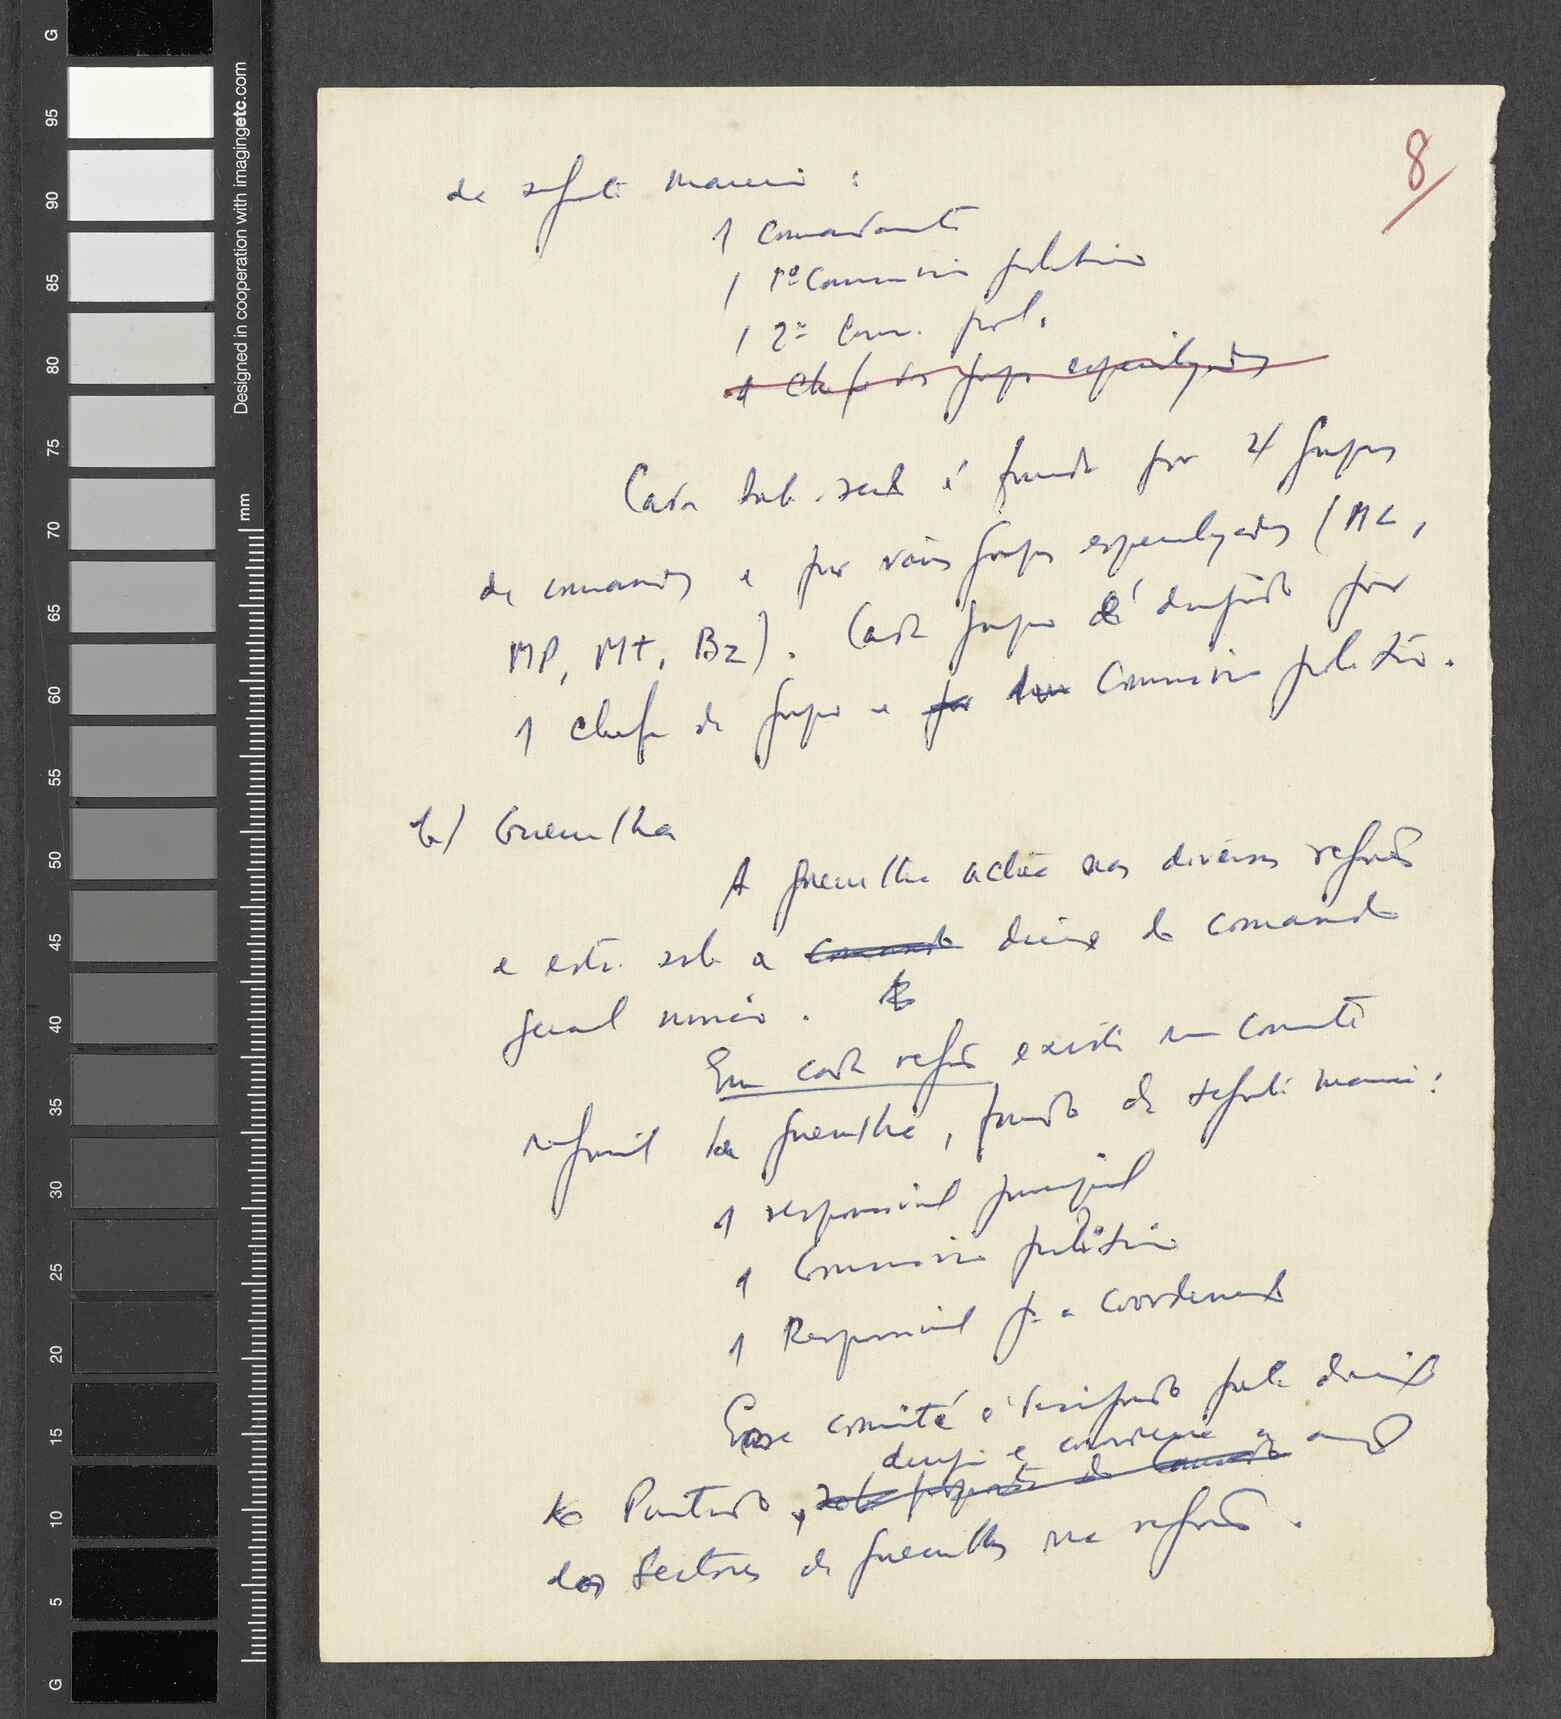 8
da seguinte maneira :
1 comandante
1 1º Comissário político
1 2º Com. pol.
1 Chefe dos grupos especializados
Cada sub-sect é formado por 4 grupos
de comandos e por vários grupos especializados (ML,
MP, Mt, Bz). Cada grupo é dirigido por
1 chefe de grupo e por um Comissário político.
b) Guerrilha
A guerrilha actua nas diversas regiões
e está sob a comando direcção do comando
geral único.
Em cada região existe um Comité
regional da guerrilha, formado da seguinte maneira :
1 responsável principal
1 Comissário político
1 Responsável p. a coordenação
Esse comité é designado pela direcção
dirige e coordena a acção
do Partido, sob proposta do Comando
dos Sectores de guerrilha na região.
Designed in cooperation with imagingetc.com
mm
G
95
90
85
80
75
70
65
60
55
50
45
40
35
30
25
20
15
10
5
G